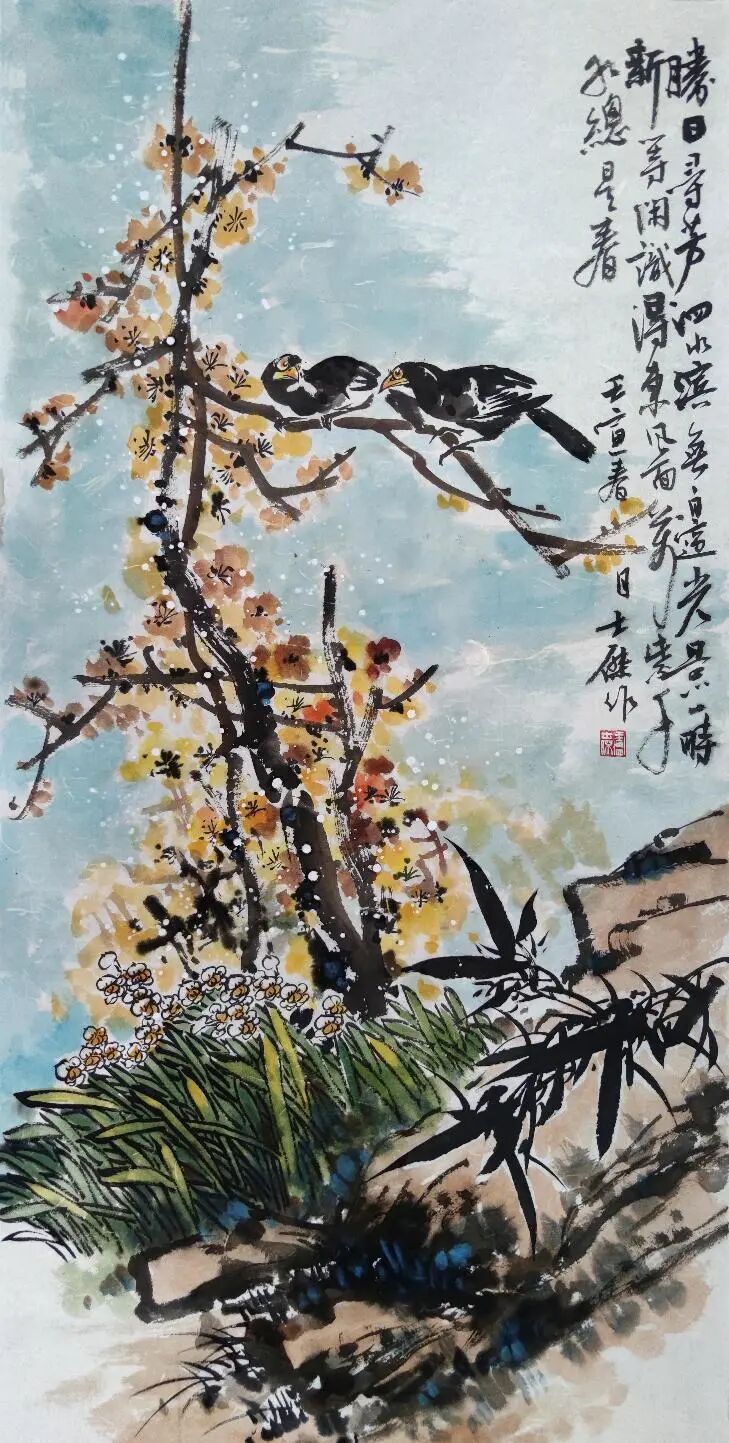 勝日寻芳泗水濱無邊光景一時
新等闲識得東风面萬紫千
红總是春
壬寅春月士傑作